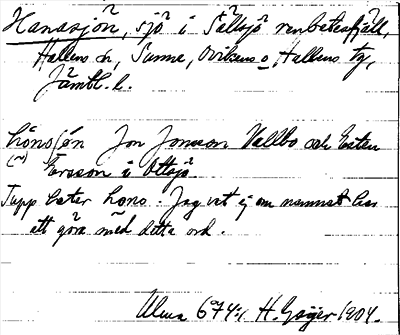 Hanasjön, sjö i Sällsjö renbetesfjäll,
Hallens sn, Sunne, Ovikens o. Hallens tg,
Jämtl. l.
hȯnsjȯn Jon Jonsson Vallbo och Esten
(~) Ersson i Ottsjö.
Tupp heter hona. Jag vet ej om namnet har
att göra med detta ord.
Ulma 674:1 H. Geijer 1904.